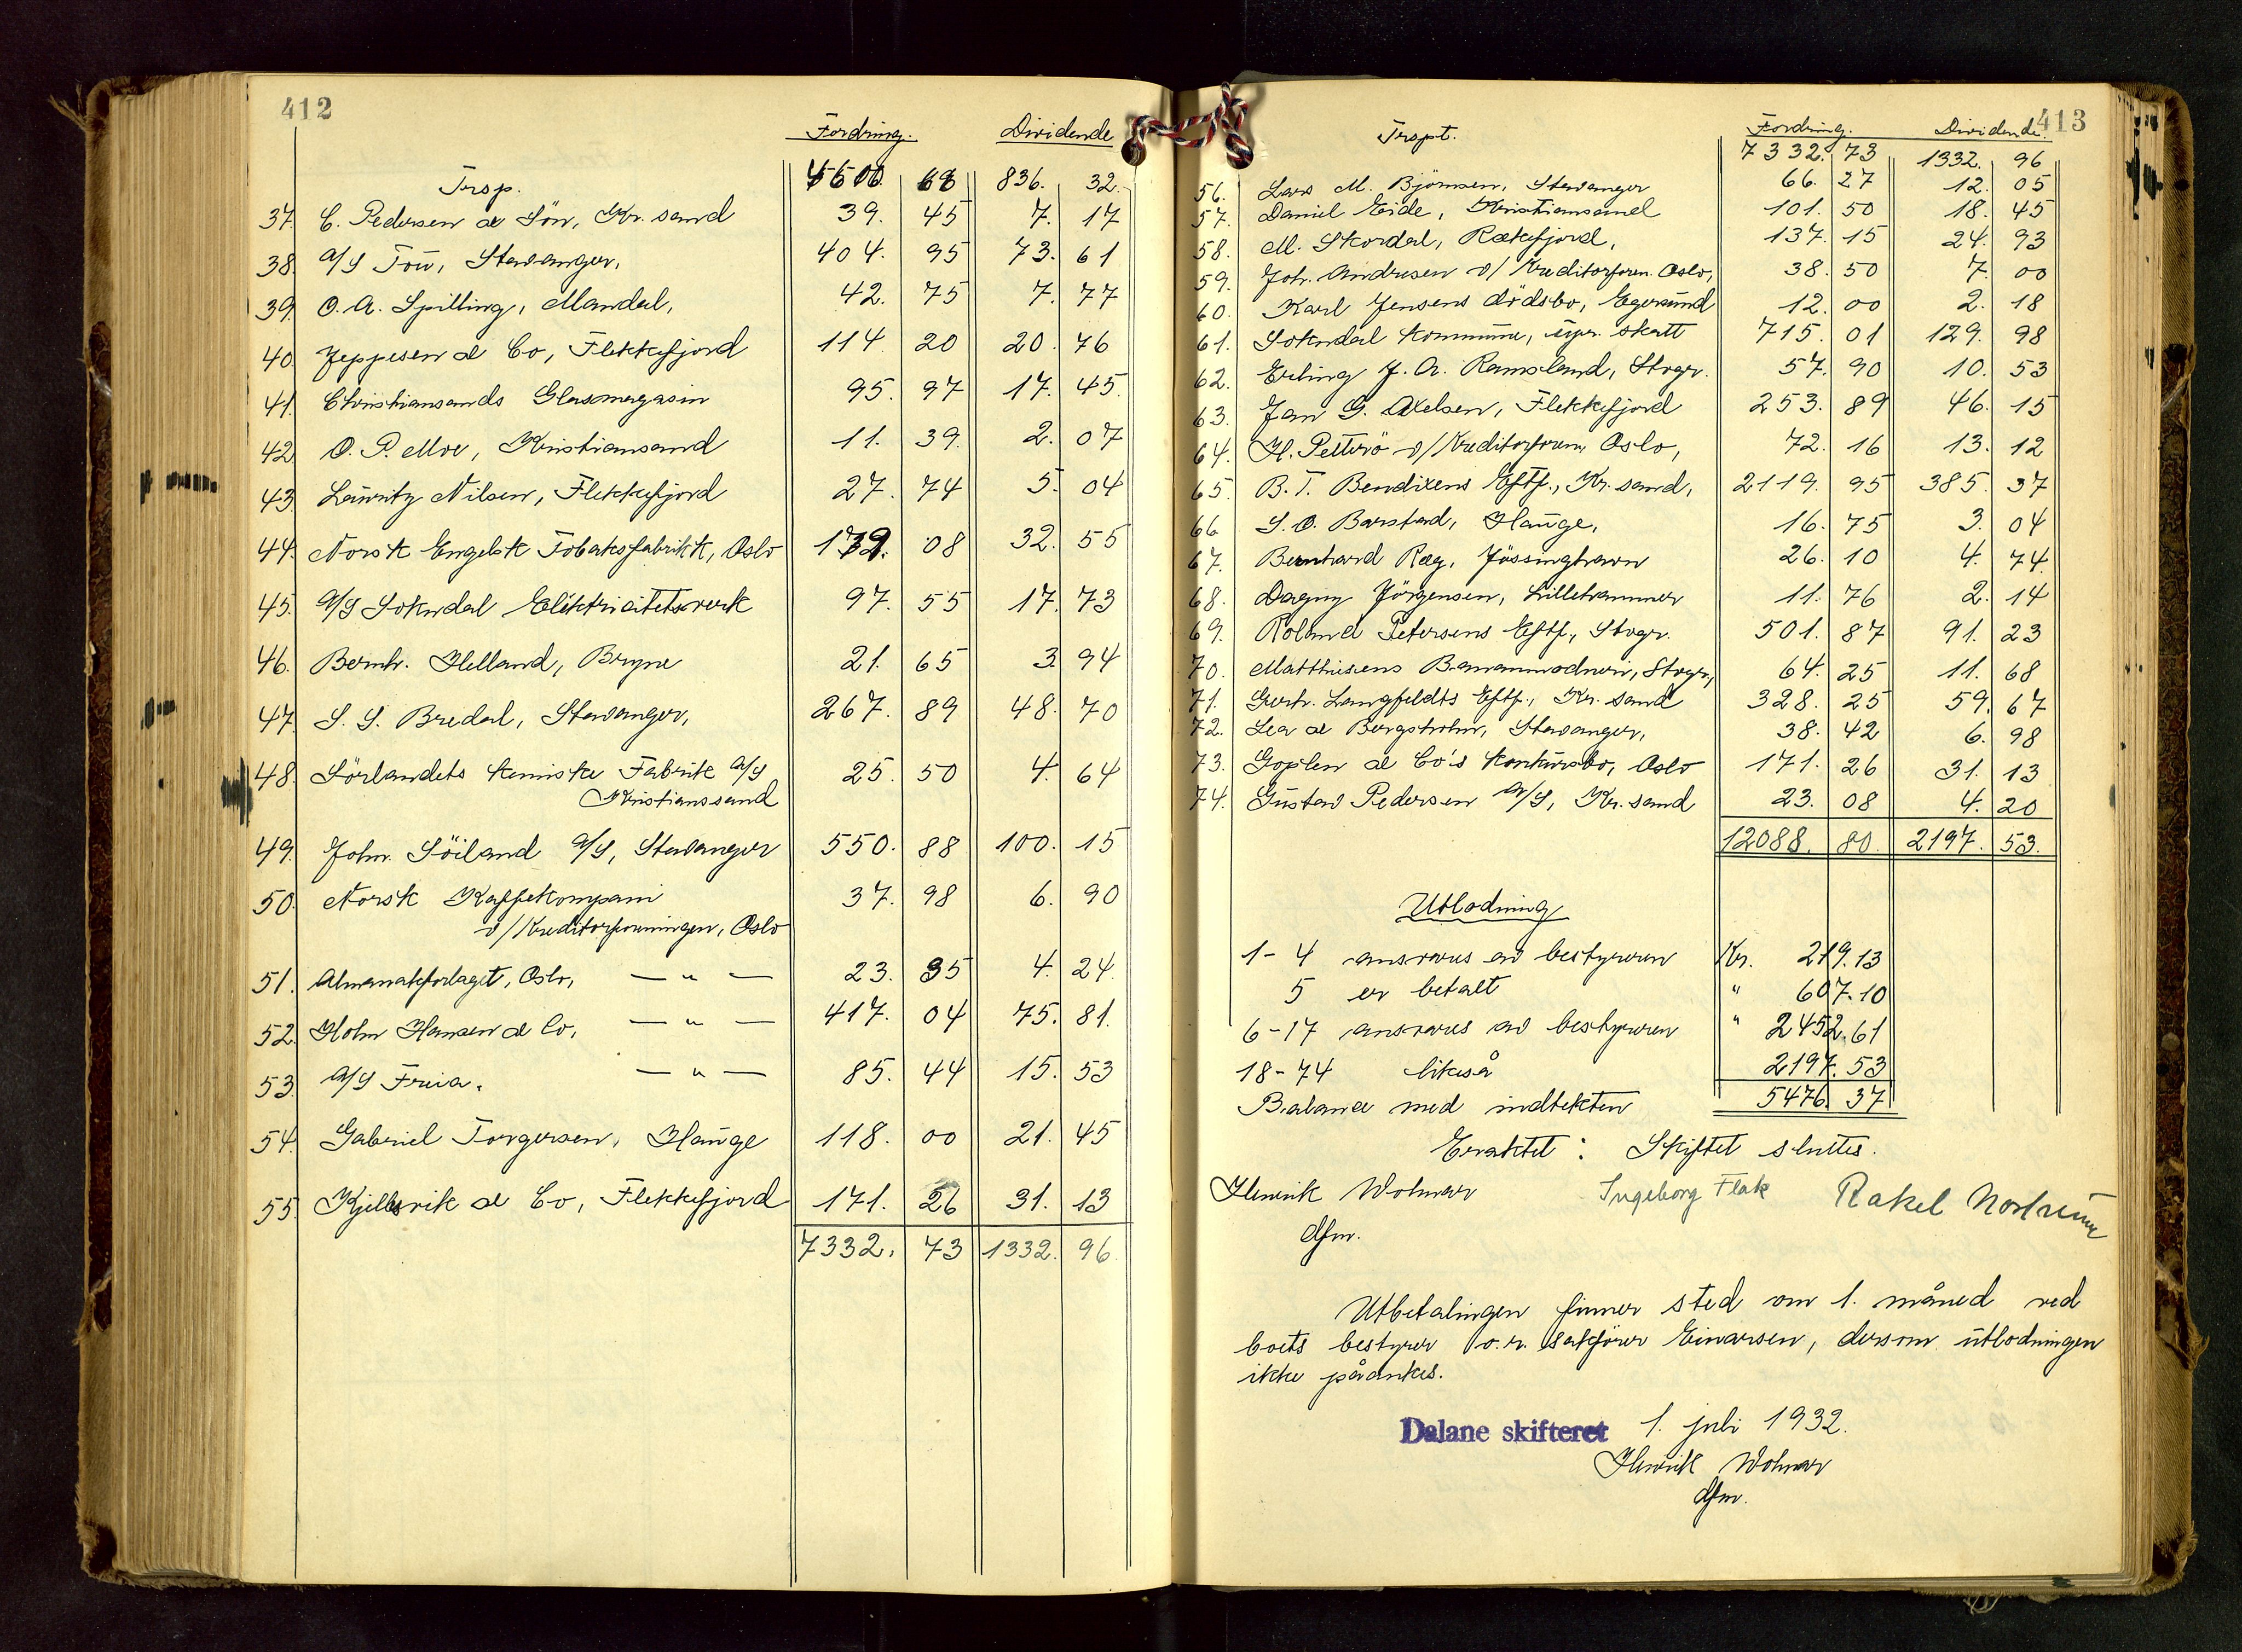 412
Fordring. Dividende
Trsp. 4600. 68 836. 32.
37. C. Pedersen & Sön, Kr. sand 39. 45 7. 17
38. A/S Tou, Stavanger, 404. 95 73. 61
39. O. A. Spilling, Mandal, 42. 75 7. 77
40. Jeppesen & Co, Flekkefjord 114. 20 20. 76
41. Christiansands Glasmagasin 95. 97 17. 45.
42. O. P. Moe, Kristiansand 11. 39. 2. 07
43. Lauritz Nilsen, Flekkefjord 27. 74 5. 04
44. Norsk Engelsk Tobaksfabrikk, Oslo 179. 08 32. 55
45. A/S Sokndal Elektricitetsverk 97. 55 17. 73
46. Bernh. Helland, Bryne 21. 65 3. 94
47. S. S. Bredal, Stavanger, 267. 89 48. 70
48. Sörlandets kemiske Fabrik A/S 25. 50 4. 64
Kristianssand
49. John. Söiland A/S, Stavanger 550. 88 100. 15
50. Norsk Kaffekompani 37. 98 6. 90
v/Kreditorforeningen, Oslo
51. Almanakforlaget, Oslo, — " — 23. 35 4. 24.
52. Holm Hansen & Co, — " — 417. 04 75. 81.
53. A/S Freia. — " — 85. 44 15. 53
54. Gabriel Torgersen, Hauge 118. 00 21. 45
55. Kjellesvik & Co, Flekkefjord 171. 26 31. 13
7332. 73 1332. 96
413
Trspt. Fordring. Dividende.
7332. 73 1332. 96
56. Lars M. Björnsen, Stavanger 66. 27 12. 05
57. Daniel Eide, Kristiansand 101. 50 18. 45
58. M. Skordal, Rækefjord, 137. 15 24. 93
59. Joh. Andresen v/Kreditorforen. Oslo, 38. 50 7. 00
60. Karl Jensens dödsbo, Egersund 12. 00 2. 18
61. Sokndal kommune, upr. skatt 715. 01 129. 98
62. Erling J. A. Ramsland, Stvgr. 57. 90 10. 53
63. Jan G. Axelsen, Flekkefjord 253. 89 46. 15
64. H. Petterö v/Kreditorforen, Oslo, 72. 16 13. 12
65. B. T. Bendixens Eftf., Kr. sand, 2119. 95 385. 37
66 S. O. Barstad, Hauge, 16. 75 3. 04
67. Bernhard Ræg, Jössinghavn 26. 10 4. 74.
68. Dagny Jörgensen, Lillehammer 11. 76 2. 14
69. Roland Petersens Eftf., Stvgr. 501. 87 91. 23
70. Matthiesens Bananmodneri, Stvgr, 64. 25 11. 68
71. Gerh. Langfeldts Eftf., Kr. sand 328. 25 59. 67
72. Lea & Bergsholm, Stavanger, 38. 42 6. 98
73. Goplen & Co's konkursbo, Oslo 171. 26 31. 13
74. Gustav Pedersen A/S, Kr. sand 23. 08 4. 20
12088. 80. 2197. 53.
Utlodning
1-4 ansvares av bestyreren Kr. 219.13
5 er betalt " 607.10
6-17 ansvares av bestyreren " 2452.61
18-74 likeså 2197. 53
Balance med indtekten 5476. 37
Eraktet: Skiftet sluttes.
Henrik Wolmar Ingeborg Fløk Rakel
dfm.
Utbetalingen finner sted om 1. måned ved
boets bestyrer o.r. sakförer Einarsen, dersom utlodningen
ikke påankes.
Dalane skifteret 1. juli 1932.
Henrik Wolmar
dfm.